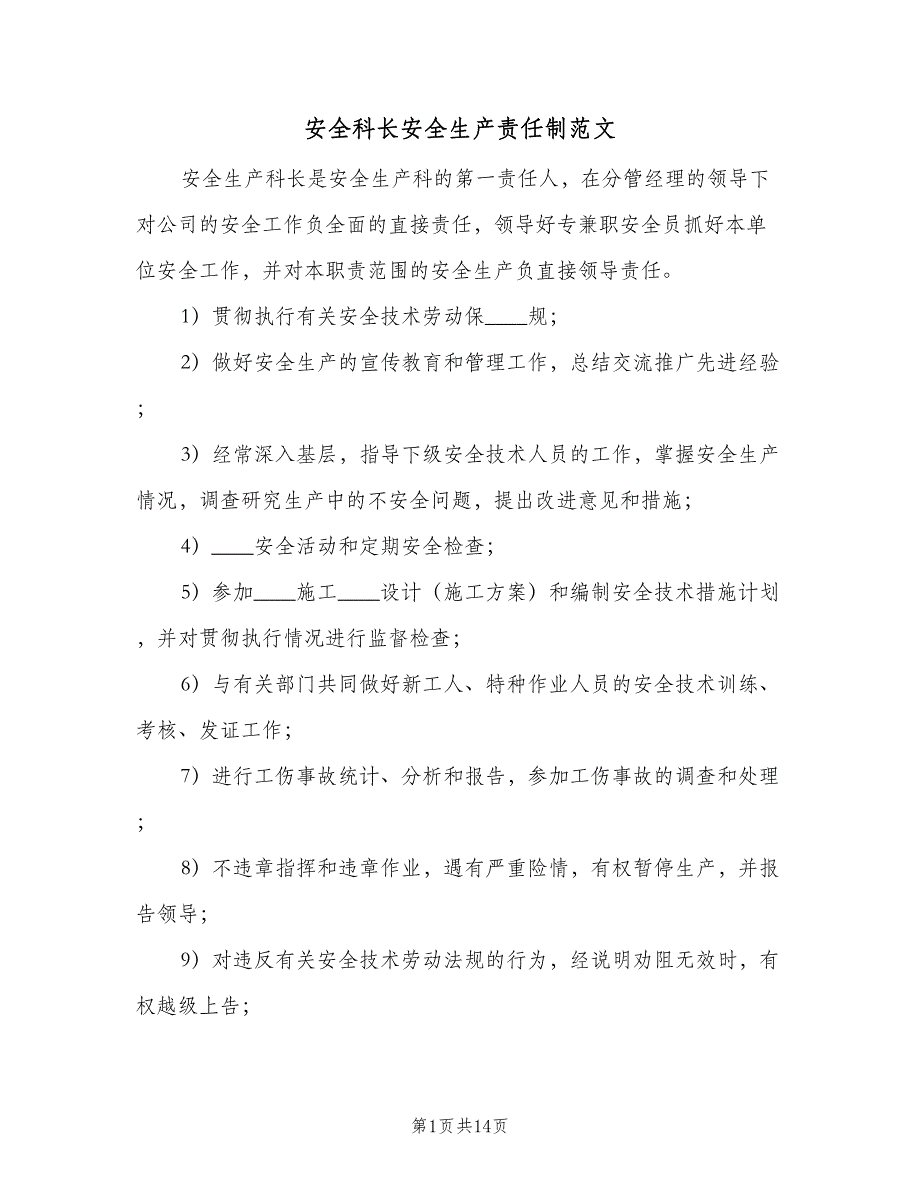 安全科长安全生产责任制范文
安全生产科长是安全生产科的第一责任人，在分管经理的领导下
对公司的安全工作负全面的直接责任，领导好专兼职安全员抓好本单
位安全工作，并对本职责范围的安全生产负直接领导责任。
1）贯彻执行有关安全技术劳动保____规；
2）做好安全生产的宣传教育和管理工作，总结交流推广先进经验
；
3）经常深入基层，指导下级安全技术人员的工作，掌握安全生产
情况，调查研究生产中的不安全问题，提出改进意见和措施；
4）____安全活动和定期安全检查；
5）参加____施工____设计（施工方案）和编制安全技术措施计划
，并对贯彻执行情况进行监督检查；
6）与有关部门共同做好新工人、特种作业人员的安全技术训练、
考核、发证工作；
7）进行工伤事故统计、分析和报告，参加工伤事故的调查和处理
；
8）不违章指挥和违章作业，遇有严重险情，有权暂停生产，并报
告领导；
9）对违反有关安全技术劳动法规的行为，经说明劝阻无效时，有
权越级上告；
第1页共14页